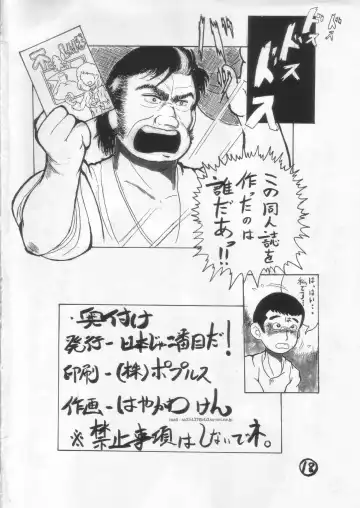 ドス
ドス
ドス
この同人誌を
作ったのは
誰だあっ!!
は、はい…
私です
・奥付け
発行-日本じゃ二番目だ!
印刷-(株)ポプルス
作画-はやかわけん
※禁止事項はしないでネ。
18